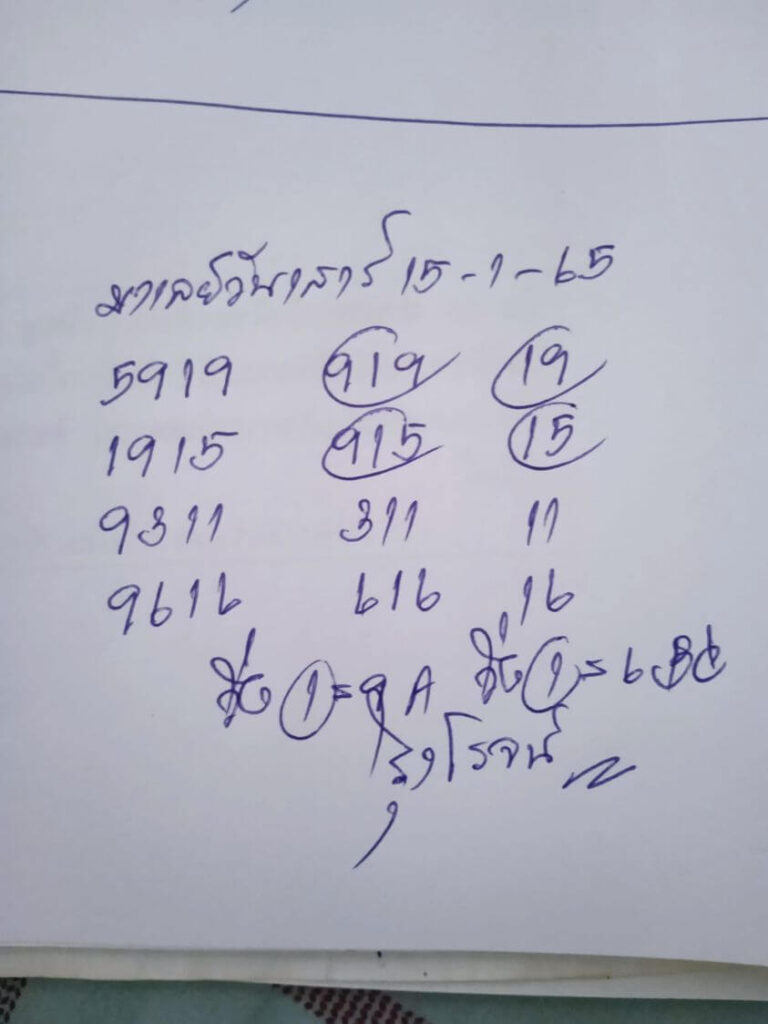 มาเลย์วันเสาร์ 15-1-65
5919 919 19
1915 915 15
9311 311 11
9616 616 16
วิ่ง 1=9 A วิ่ง 1=6
รุ่งโรจน์